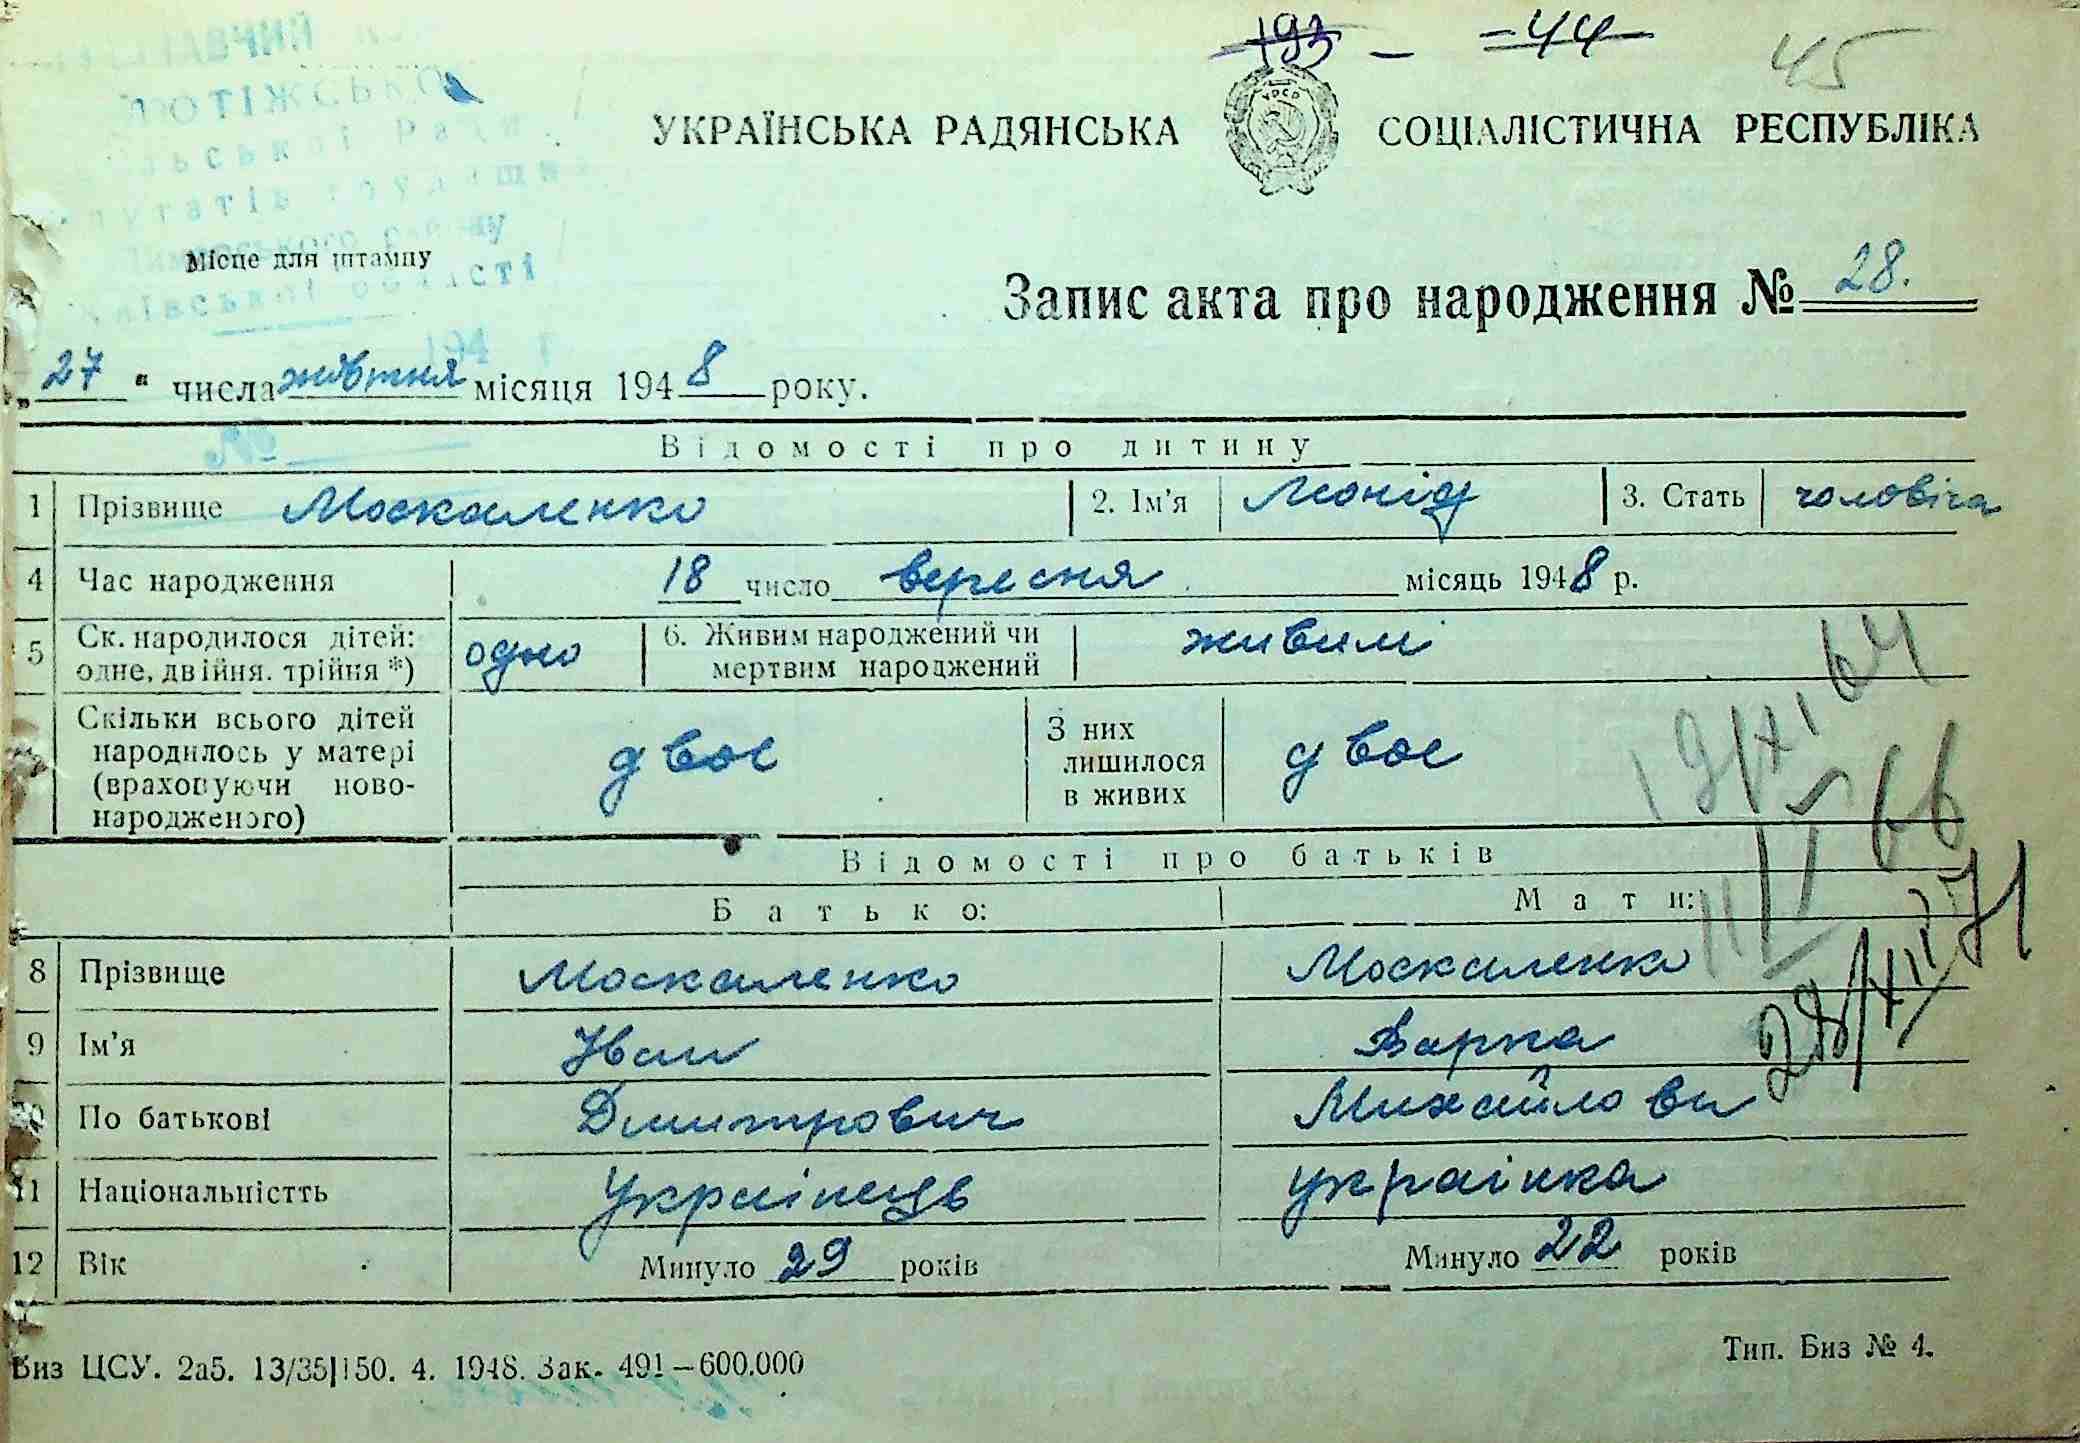 193 - = 44 45
УКРАЇНСЬКА РАДЯНСЬКА СОЦІАЛІСТИЧНА РЕСПУБЛІКА
УРСР
Місце для штампу
Київської області
194 г
Запис акта про народження № 28.
„27“ числа жовтня місяця 1948 року.
№
Відомості про дитину
1 Прізвище Москаленко 2. Ім'я Леонід 3. Стать чоловіча
4 Час народження 18 число вересня місяць 1948 р.
5 Ск. народилося дітей: одне, двійня. трійня *) одно 6. Живим народжений чи мертвим народжений живимі
Скільки всього дітей народилось у матері (враховуючи новонародженого) двоє З них лишилося в живих двоє
19/XI 64
11/V 66
28/XII 71
Відомості про батьків
Батько: Мати:
8 Прізвище Москаленко Москаленко
9 Ім'я Іван Варка
10 По батькові Дмитрович Михайлови
11 Національністть Українець українка
12 Вік Минуло 29 років Минуло 22 років
Биз ЦСУ. 2а5. 13/35|150. 4. 1948. Зак. 491–600.000
Тип. Биз № 4.